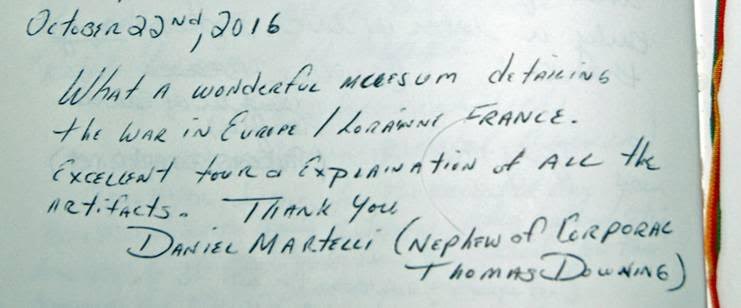 October 22nd, 2016
What a wonderful meeesum detailing
the war in Europe / Lorainne France.
Excellent tour & Explaination of all the
artifacts. Thank you
Daniel Martelli (Nephew of Corporal
Thomas Downing)